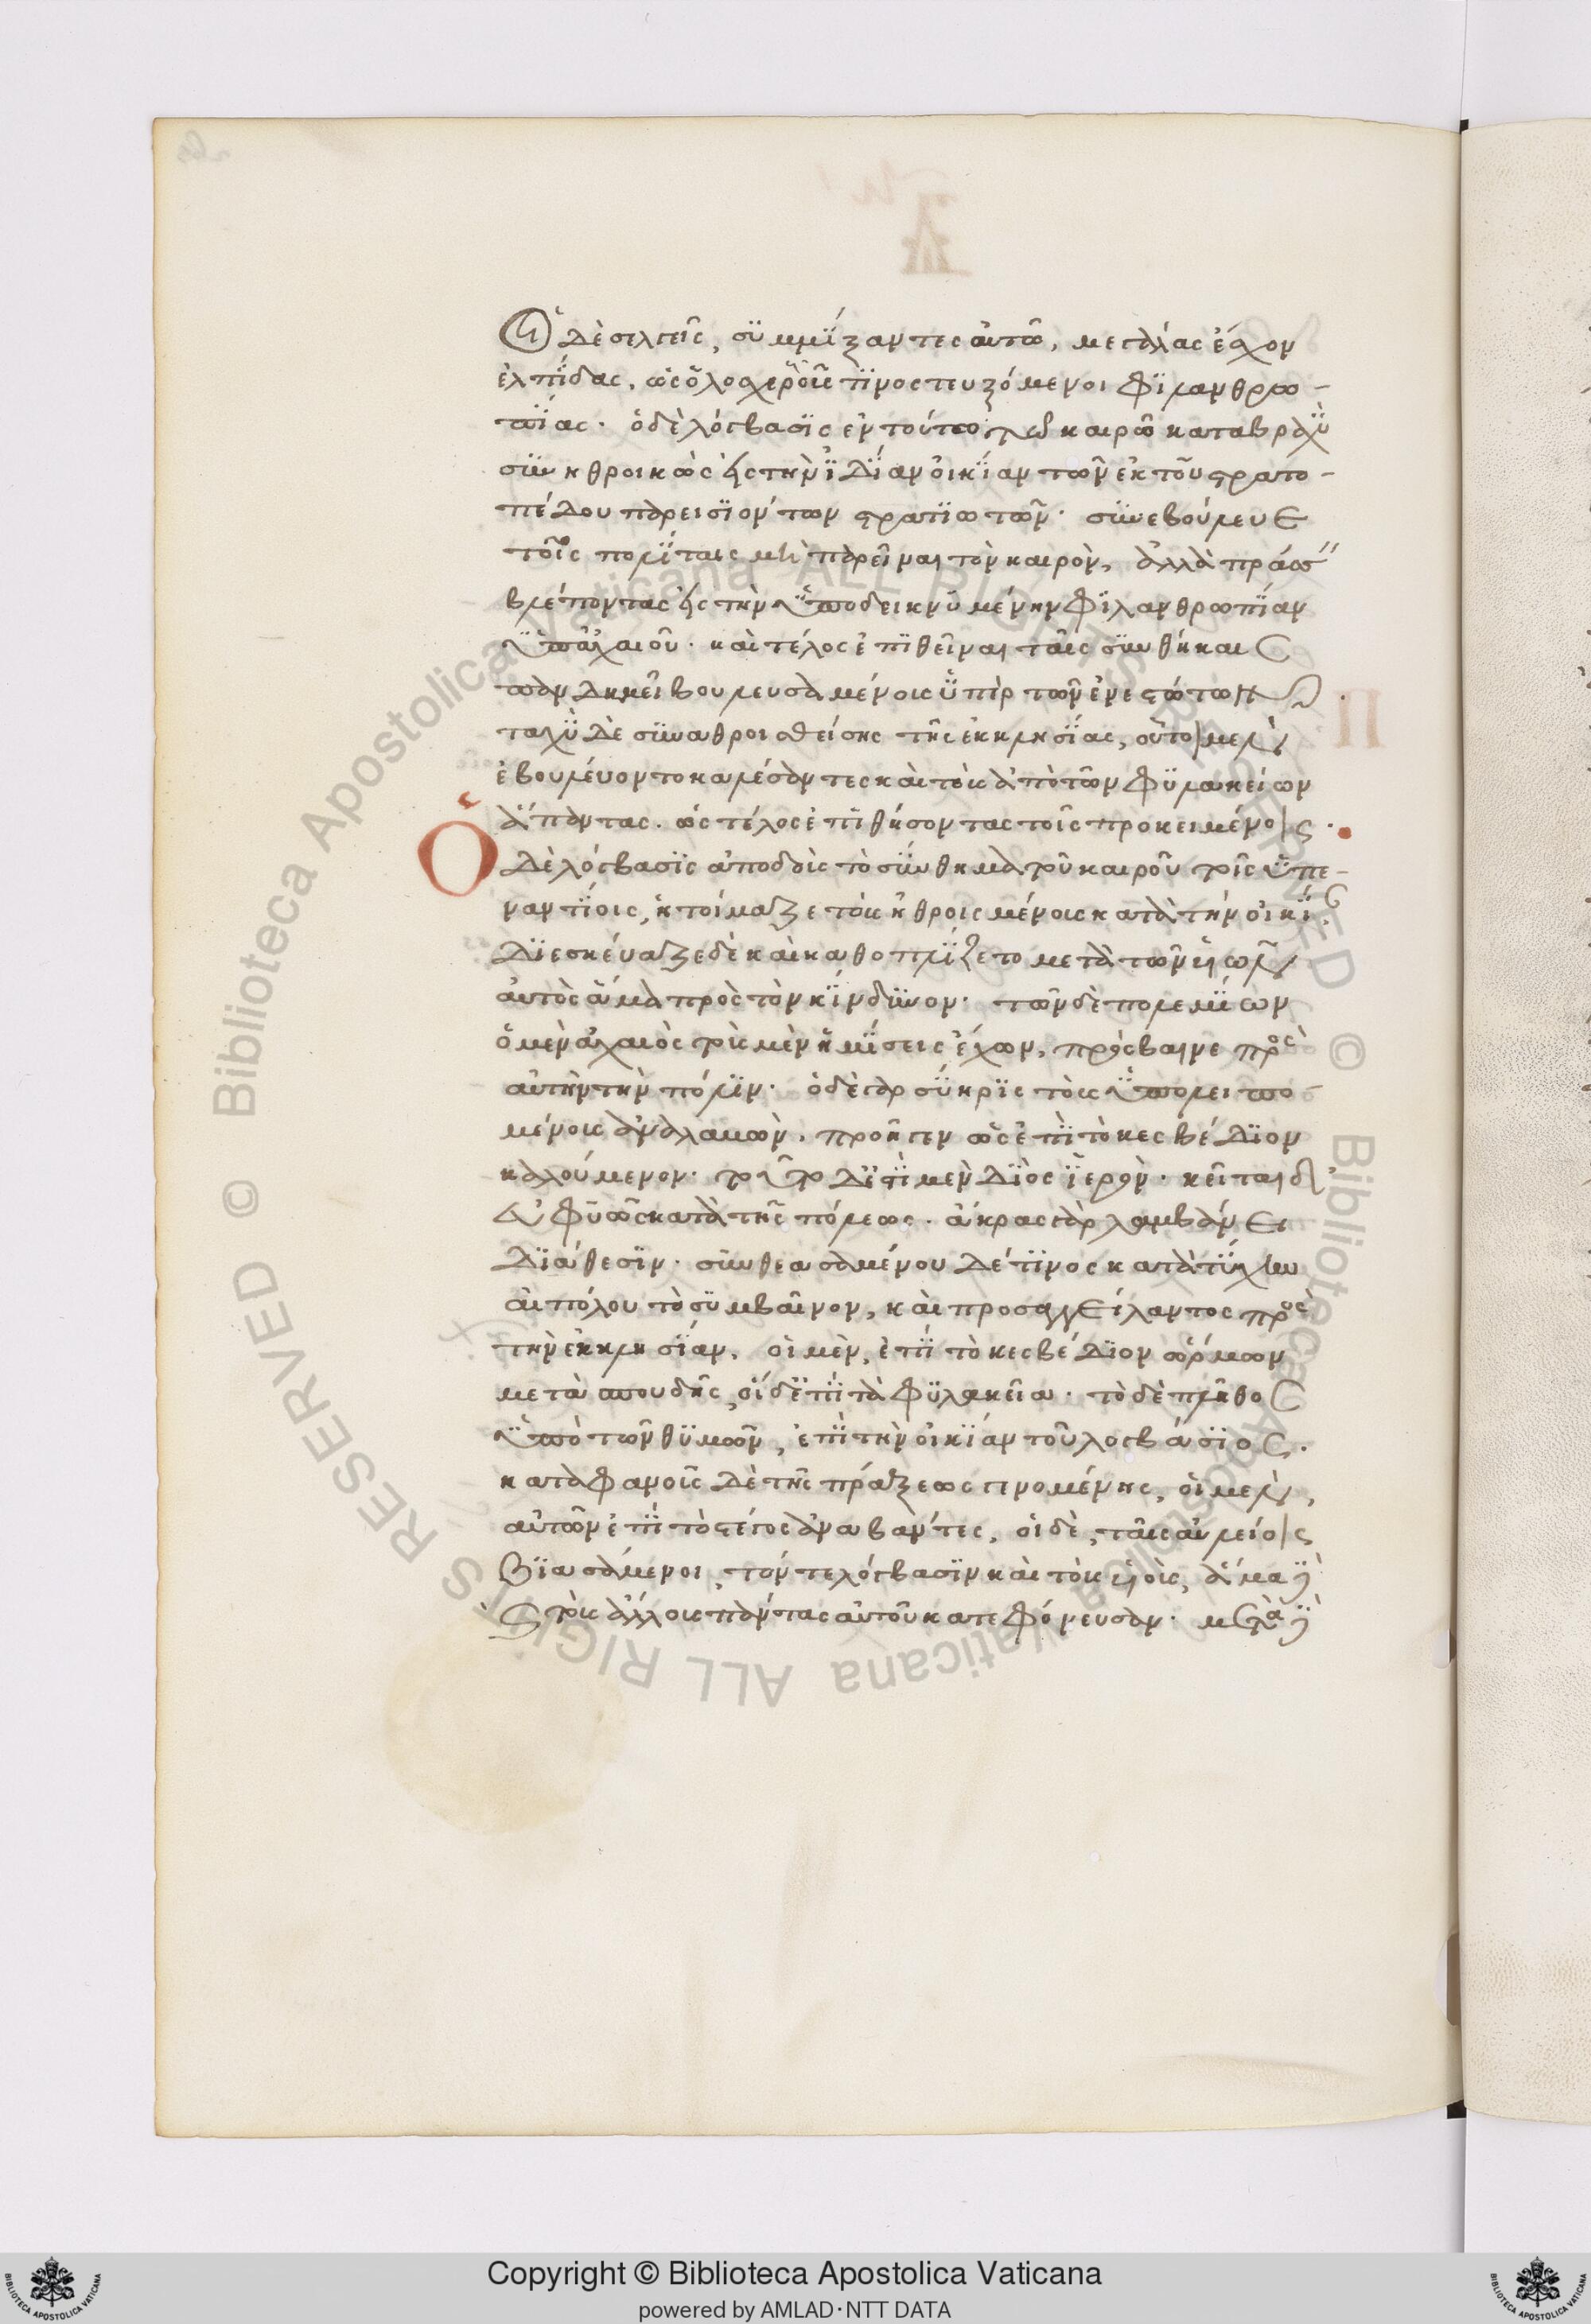 Οἱ δὲ σελγεῖς, συμμίξαντες αὐτῶ, μεγάλας ἔσχον
ἐλπίδας, ὡς ὁλοσχεροῦς τινος τευξόμενοι φιλανθρω-
πίας. ὁ δὲ λόγβασις ἐν τούτω τῶ καιρῶ καταβραχὺ
συνηθροικὼς εἰς τὴν ἰδίαν οἰκίαν τῶν ἐκ τοῦ στρατο-
πέδου παρεισιόντων στρατιωτῶν. συνεβούλευε
τοῖς πολίταις μὴ παρεῖναι τὸν καιρὸν, ἀλλὰ πράττ
βλέποντας εἰς τὴν ὑποδεικνυμένην φιλανθρωπίαν
ὑπ' ἀχαιοῦ. καὶ τέλος ἐπιθεῖναι ταῖς συνθήκαις
πανδημεῖ βουλευσαμένους ὑπὲρ τῶν ἐνεστώτων
ταχὺ δὲ συναθροισθείσης τῆς ἐκκλησίας, οὗτοι μὲν
ἐβουλεύοντο καλέσαντες καὶ τοὺς ἀπὸ τῶν φυλακείων
ἅπαντας. ὡς τέλος ἐπιθήσοντας τοῖς προκειμένοις.
Ὁ δὲ λόγβασις ἀποδοὺς τὸ σύνθημα τοῦ καιροῦ τοῖς ὑπε-
ναντίοις, ἡτοίμαζε τοὺς ἠθροισμένους κατὰ τὴν οἰκί
διεσκεύαζε δὲ καὶ καθοπλίζετο μετὰ τῶν υἱῶν
αὐτὸς ἅμα πρὸς τὸν κίνδυνον. τῶν δὲ πολεμίων
ὁ μὲν ἀχαιὸς τοὺς μὲν ἡμίσεις ἔχων, προσέβαινε πρὸς
αὐτὴν τὴν πόλιν. ὁ δὲ γαρσύηρις τοὺς ὑπολειπο
μένους ἀναλαβὼν, προῆγεν ὡς ἐπὶ τὸ κεσβέδιον
καλούμενον. τοῦτο δ' ἐστὶ μὲν διὸς ἱερὸν. κεῖται δ'
εὐφυῶς κατὰ τῆς πόλεως. ἄκρας γὰρ λαμβάνει
διάθεσιν. συνθεασαμένου δέ τινος κατὰ τύχην
αἰπόλου τὸ συμβαῖνον, καὶ προσαγγείλαντος πρὸς
τὴν ἐκκλησίαν, οἱ μὲν, ἐπὶ τὸ κεσβέδιον ὥρμων
μετὰ σπουδῆς, οἱ δ' ἐπὶ τὰ φυλακεῖα. τὸ δὲ πλῆθος
ὑπὸ τῶν θυμῶν, ἐπὶ τὴν οἰκίαν τοῦ λογβάσιος.
καταφανοῦς δὲ τῆς πράξεως γινομένης, οἱ μὲν,
αὐτῶν ἐπὶ τὸ στέγος ἀναβάντες, οἱ δὲ, ταῖς αὐλείοις
βιασάμενοι, τόν τε λόγβασιν καὶ τοὺς υἱοὺς, ἅμα δὲ
καὶ τοὺς ἄλλους πάντας αὐτοῦ κατεφόνευσαν. μετὰ δὲ